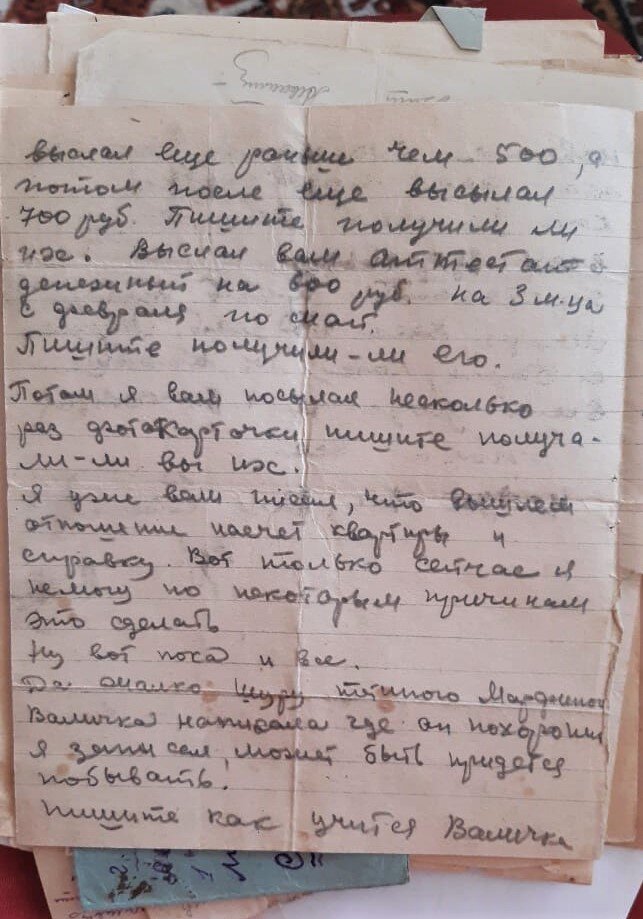 выслал еще раньше чем 500, а
потом после еще высылал
700 руб. Пишите получили ли
их. Выслал вам аттестат
денежный на 600 руб. на 3 м-ца
с февраля по май.
Пишите получили-ли его.
Потом я вам посылал несколько
раз фотокарточки пишите получа-
ли-ли вы их.
Я уже вам писал, что вышлю
отношение насчет квартиры и
справку. Вот только сейчас я
немогу по некоторым причинам
это сделать
Ну вот пока и все.
Да жалко Шуру
Валичка написала где он похоронен
я записал, может быть придется
побывать.
Пишите как учится Валичка